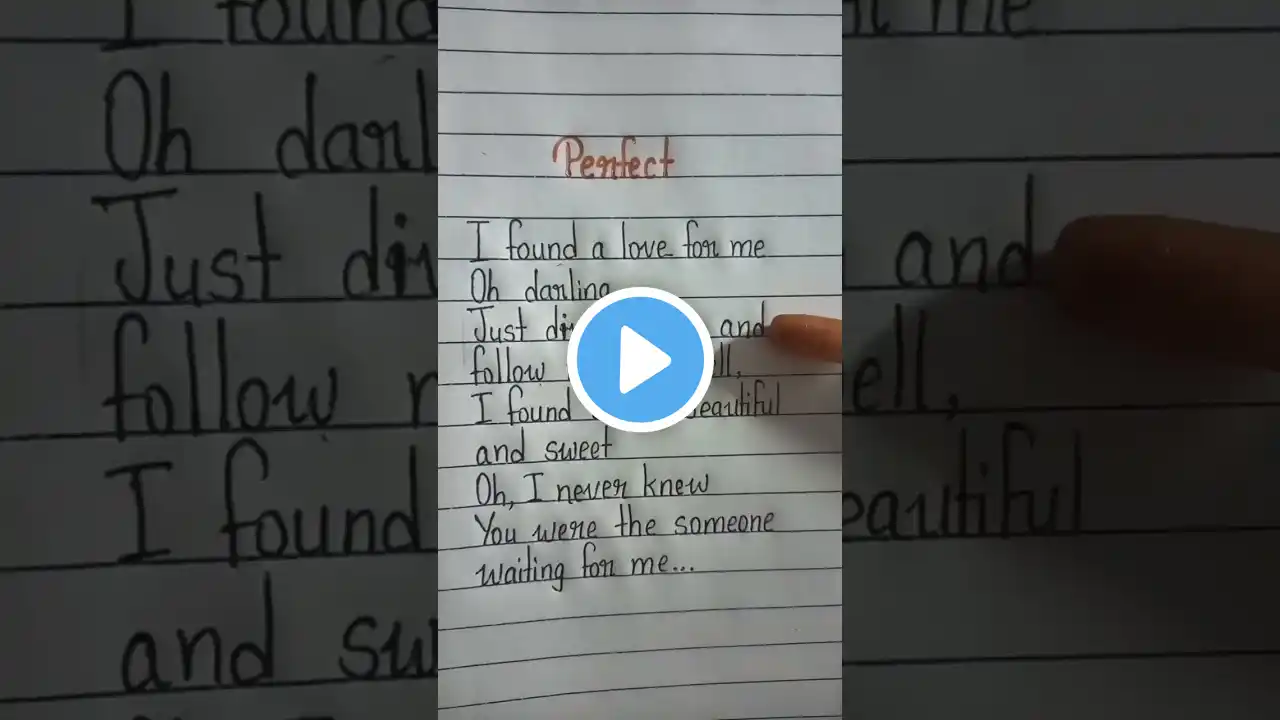 Perfect
I found a love for me
Oh darling
Just and
follow
I found beautiful
and sweet
Oh, I never knew
You were the someone
waiting for me...